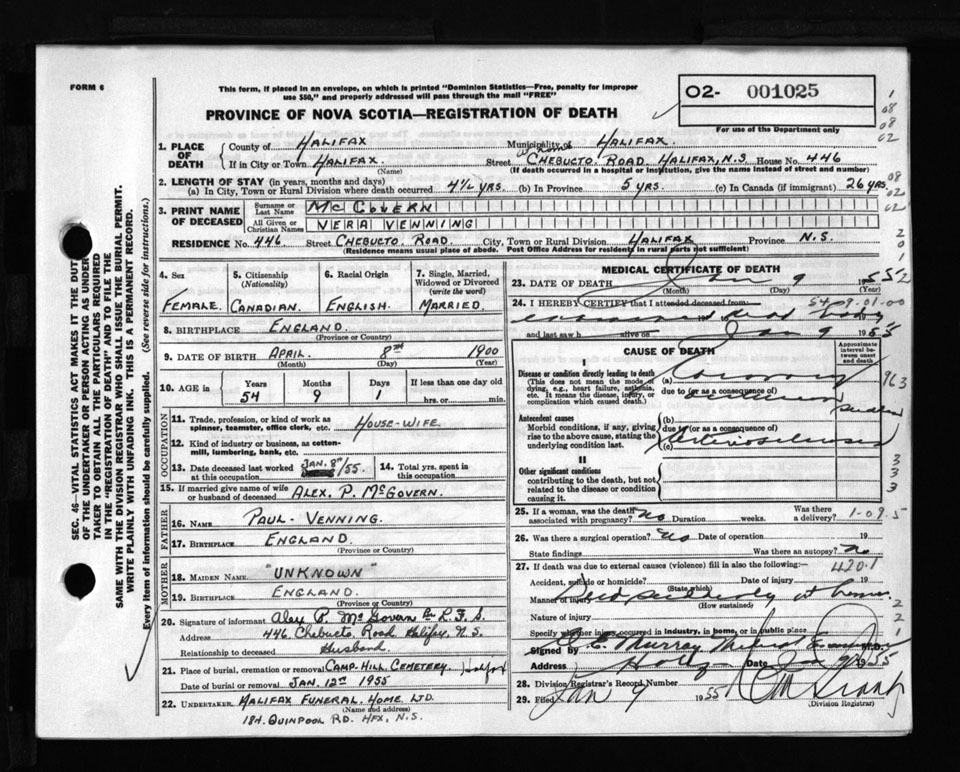 FORM 6
This form, if placed in an envelope, on which is printed "Dominion Statistics—Free, penalty for improper
use $50," and properly addressed will pass through the mail "FREE"
02- 001025
For use of the Department only
PROVINCE OF NOVA SCOTIA—REGISTRATION OF DEATH
1. PLACE OF DEATH
County of HALIFAX Municipality of HALIFAX.
If in City or Town HALIFAX. (Name) Street CHEBUCTO ROAD. HALIFAX, N.S House No. 446
(If death occurred in a hospital or institution, give the name instead of street and number)
2. LENGTH OF STAY (in years, months and days)
(a) In City, Town or Rural Division where death occurred 4½ YRS. (b) In Province 5 YRS. (c) In Canada (if immigrant) 26 YRS.
3. PRINT NAME OF DECEASED
Surname or Last Name MC GOVERN
All Given or Christian Names VERA VENNING
RESIDENCE No. 446 Street CHEBUCTO. ROAD. City, Town or Rural Division HALIFAX Province N.S.
(Residence means usual place of abode. Post Office Address for residents in rural parts not sufficient)
4. Sex FEMALE.
5. Citizenship (Nationality) CANADIAN.
6. Racial Origin ENGLISH.
7. Single, Married, Widowed or Divorced (write the word) MARRIED.
8. BIRTHPLACE ENGLAND
(Province or Country)
9. DATE OF BIRTH APRIL. 8TH 1900
(Month) (Day) (Year)
10. AGE in Years 54 Months 9 Days 1 If less than one day old hrs. or min.
OCCUPATION
11. Trade, profession, or kind of work as spinner, teamster, office clerk, etc. HOUSE-WIFE.
12. Kind of industry or business, as cotton-mill, lumbering, bank, etc.
13. Date deceased last worked at this occupation JAN. 8TH/55.
14. Total yrs. spent in this occupation
15. If married give name of wife or husband of deceased ALEX. P. McGOVERN.
FATHER
16. NAME PAUL-VENNING.
17. BIRTHPLACE ENGLAND.
(Province or Country)
MOTHER
18. MAIDEN NAME "UNKNOWN"
19. BIRTHPLACE ENGLAND.
(Province or Country)
20. Signature of informant Alex P. McGovern
Address 446. Chebucto Road Halifax. N.S.
Relationship to deceased Husband.
21. Place of burial, cremation or removal CAMP. HILL. CEMETERY.
Date of burial or removal JAN. 12TH 1955
22. UNDERTAKER HALIFAX FUNERAL. HOME. LTD.
(Name and address)
184. QUINPOOL RD. HFX, N.S.
MEDICAL CERTIFICATE OF DEATH
23. DATE OF DEATH 9 1955
(Month) (Day) (Year)
24. I HEREBY CERTIFY that I attended deceased from
dead body
and last saw h alive on Jan 9 1955
54 09.01-00
CAUSE OF DEATH
Approximate interval between onset and death
I
Disease or condition directly leading to death
(This does not mean the mode of dying, e.g., heart failure, asthenia, etc. It means the disease, injury, or complication which caused death.)
(a) Coronary
due to (or as a consequence of)
Antecedent causes
Morbid conditions, if any, giving rise to the above cause, stating the underlying condition last.
(b)
due to (or as a consequence of)
(c) Arteriosclerosis
II
Other significant conditions
contributing to the death, but not related to the disease or condition causing it.
25. If a woman, was the death associated with pregnancy? no Duration weeks. Was there a delivery?
26. Was there a surgical operation? no Date of operation 19
State findings Was there an autopsy? no
27. If death was due to external causes (violence) fill in also the following:—
420.1
Accident, suicide or homicide? (State which) Date of injury 19
Manner of injury Died suddenly at home
(How sustained)
Nature of injury
Specify whether injury occurred in industry, in home, or in public place
Signed by Murray Medical Examiner M.D.
Address Date Jan 9 1955
28. Division Registrar's Record Number
29. Filed Jan 9 1955
(Division Registrar)
SEC. 46—VITAL STATISTICS ACT MAKES IT THE DUTY
OF THE UNDERTAKER OR PERSON ACTING AS UNDERTAKER
TO OBTAIN ALL THE PARTICULARS REQUIRED
IN THE "REGISTRATION OF DEATH" AND TO FILE THE
SAME WITH THE DIVISION REGISTRAR WHO SHALL ISSUE THE BURIAL PERMIT.
WRITE PLAINLY WITH UNFADING INK. THIS IS A PERMANENT RECORD.
Every item of information should be carefully supplied. (See reverse side for instructions.)